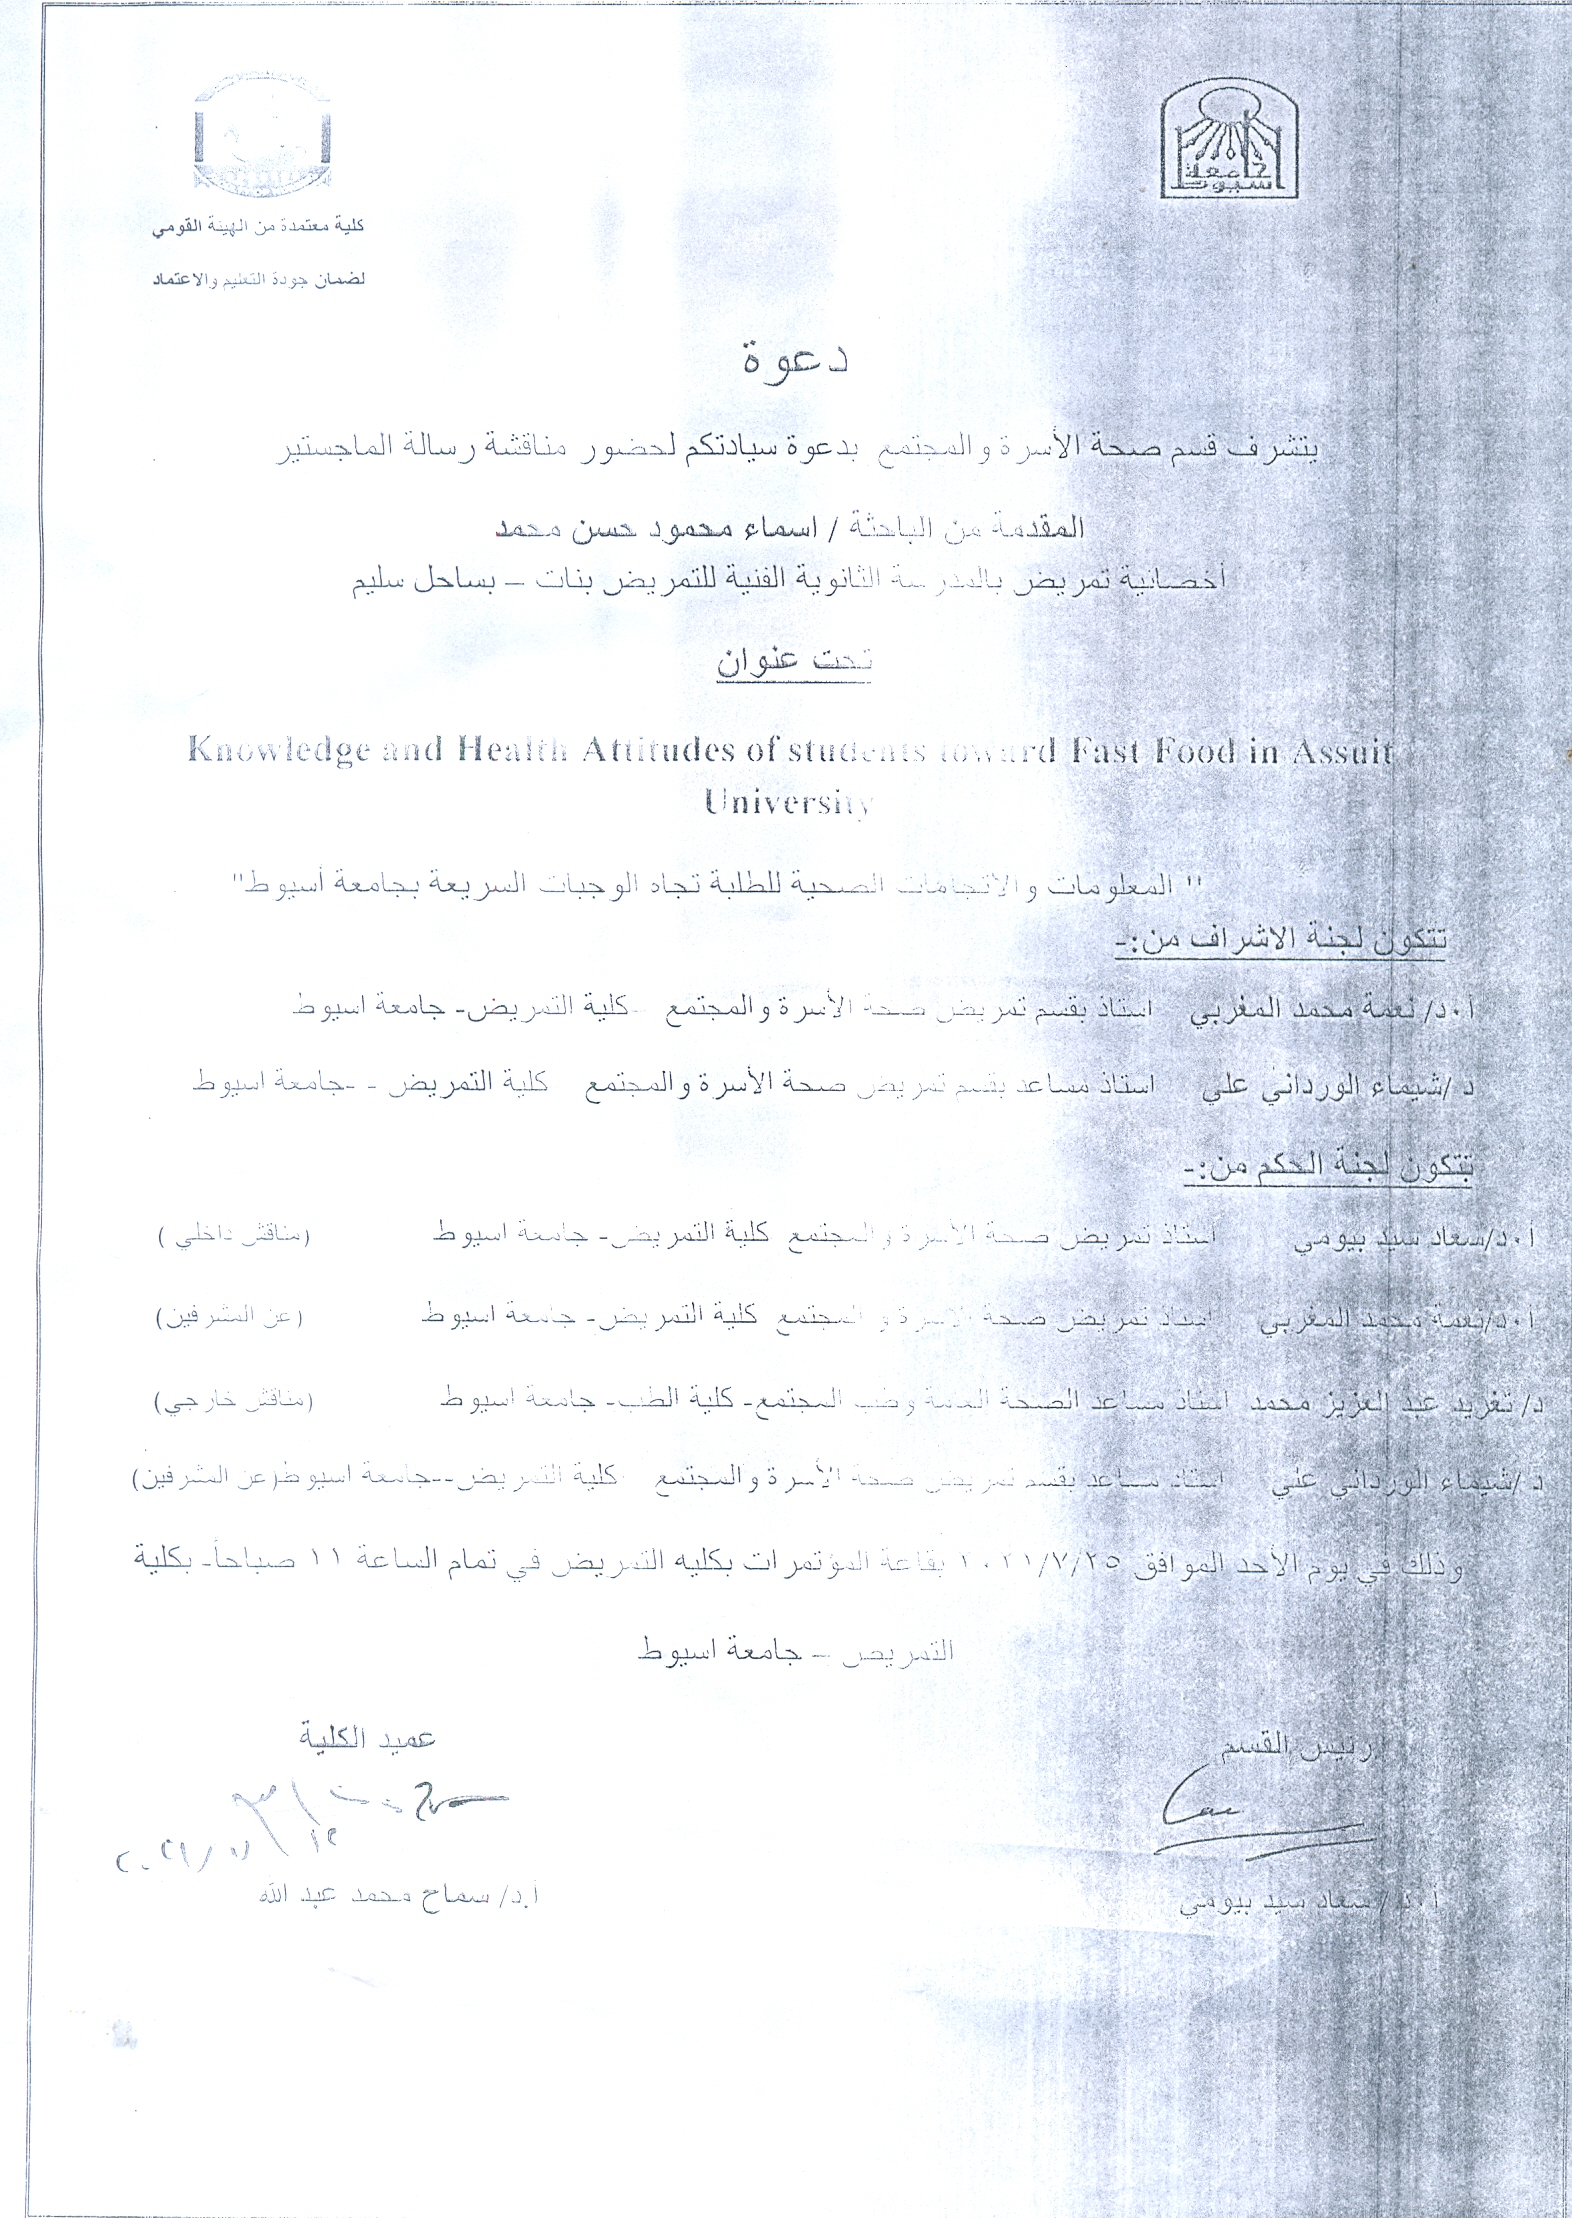 جامعة
أسيوط
كلية معتمدة من الهيئة القومي
لضمان جودة التعليم والاعتماد
دعوة
يتشرف قسم صحة الأسرة والمجتمع بدعوة سيادتكم لحضور مناقشة رسالة الماجستير
المقدمة من الباحثة / اسماء محمود حسن محمد
أخصائية تمريض بالمدرسة الثانوية الفنية للتمريض بنات – بساحل سليم
تحت عنوان
Knowledge and Health Attitudes of students toward Fast Food in Assuit
University
" المعلومات والاتجاهات الصحية للطلبة تجاه الوجبات السريعة بجامعة أسيوط"
تتكون لجنة الاشراف من:-
أ.د/ نعمة محمد المغربي استاذ بقسم تمريض صحة الأسرة والمجتمع -كلية التمريض- جامعة اسيوط
د /شيماء الورداني علي استاذ مساعد بقسم تمريض صحة الأسرة والمجتمع كلية التمريض - -جامعة اسيوط
تتكون لجنة الحكم من:-
أ.د/سعاد سيد بيومي استاذ تمريض صحة الأسرة والمجتمع كلية التمريض- جامعة اسيوط (مناقش داخلي )
ا.د/نعمة محمد المغربي استاذ تمريض صحة الاسرة والمجتمع كلية التمريض- جامعة اسيوط (عن المشرفين)
د/ تغريد عبد العزيز محمد استاذ مساعد الصحة العامة وطب المجتمع- كلية الطب- جامعة اسيوط (مناقش خارجي)
د /شيماء الورداني علي استاذ مساعد بقسم تمريض صحة الأسرة والمجتمع كلية التمريض--جامعة اسيوط(عن المشرفين)
وذلك في يوم الأحد الموافق ٢٠٢١/٧/٢٥ بقاعة المؤتمرات بكليه التمريض في تمام الساعة ١١ صباحاً- بكلية
التمريض – جامعة اسيوط
رئيس القسم عميد الكلية
أ.د / سعاد سيد بيومي أ.د/ سماح محمد عبد الله